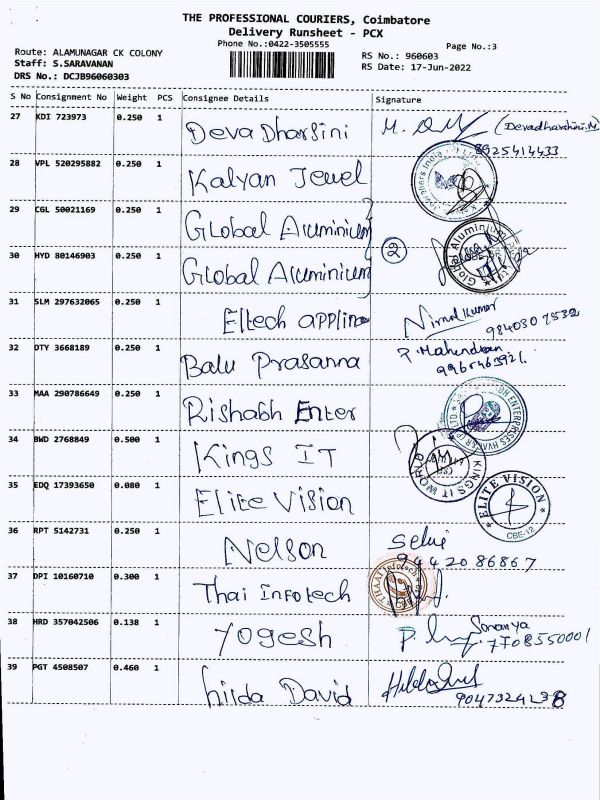 THE PROFESSIONAL COURIERS, Coimbatore
Delivery Runsheet - PCX
Phone No.:0422-3505555
Page No.:3
Route: ALAMUNAGAR CK COLONY
Staff: S.SARAVANAN
DRS No.: DCJB96060303
RS No.: 960603
RS Date: 17-Jun-2022
S No Consignment No Weight PCS Consignee Details Signature
27 KDI 723973 0.250 1 Deva Dharsini M. (Devadharshini.M)
8925414433
28 VPL 520295882 0.250 1 Kalyan Jewel
29 CGL 50021169 0.250 1 Global Aluminium
30 HYD 80146903 0.250 1 Global Aluminium 2
Global Aluminium
31 SLM 297632065 0.250 1 Eltech applin Nirmal Kumar
9840307532
32 DTY 3668189 0.250 1 Balu Prasanna P. Mahendran
9965463921.
33 MAA 290786649 0.250 1 Rishabh Enter
ENTERPRISES
34 BWD 2768849 0.500 1 Kings IT
KINGS IT WORLD
35 EDQ 17393650 0.080 1 Elite Vision
ELITE VISION
CBE-12
36 RPT 5142731 0.250 1 Nelson Selvi
9442086867
37 DPI 10160710 0.300 1 Thai Infotech
38 HRD 357042506 0.138 1 Yogesh Saranya
7708550001
39 PGT 4508507 0.460 1 hilda David Hilda
9047324238